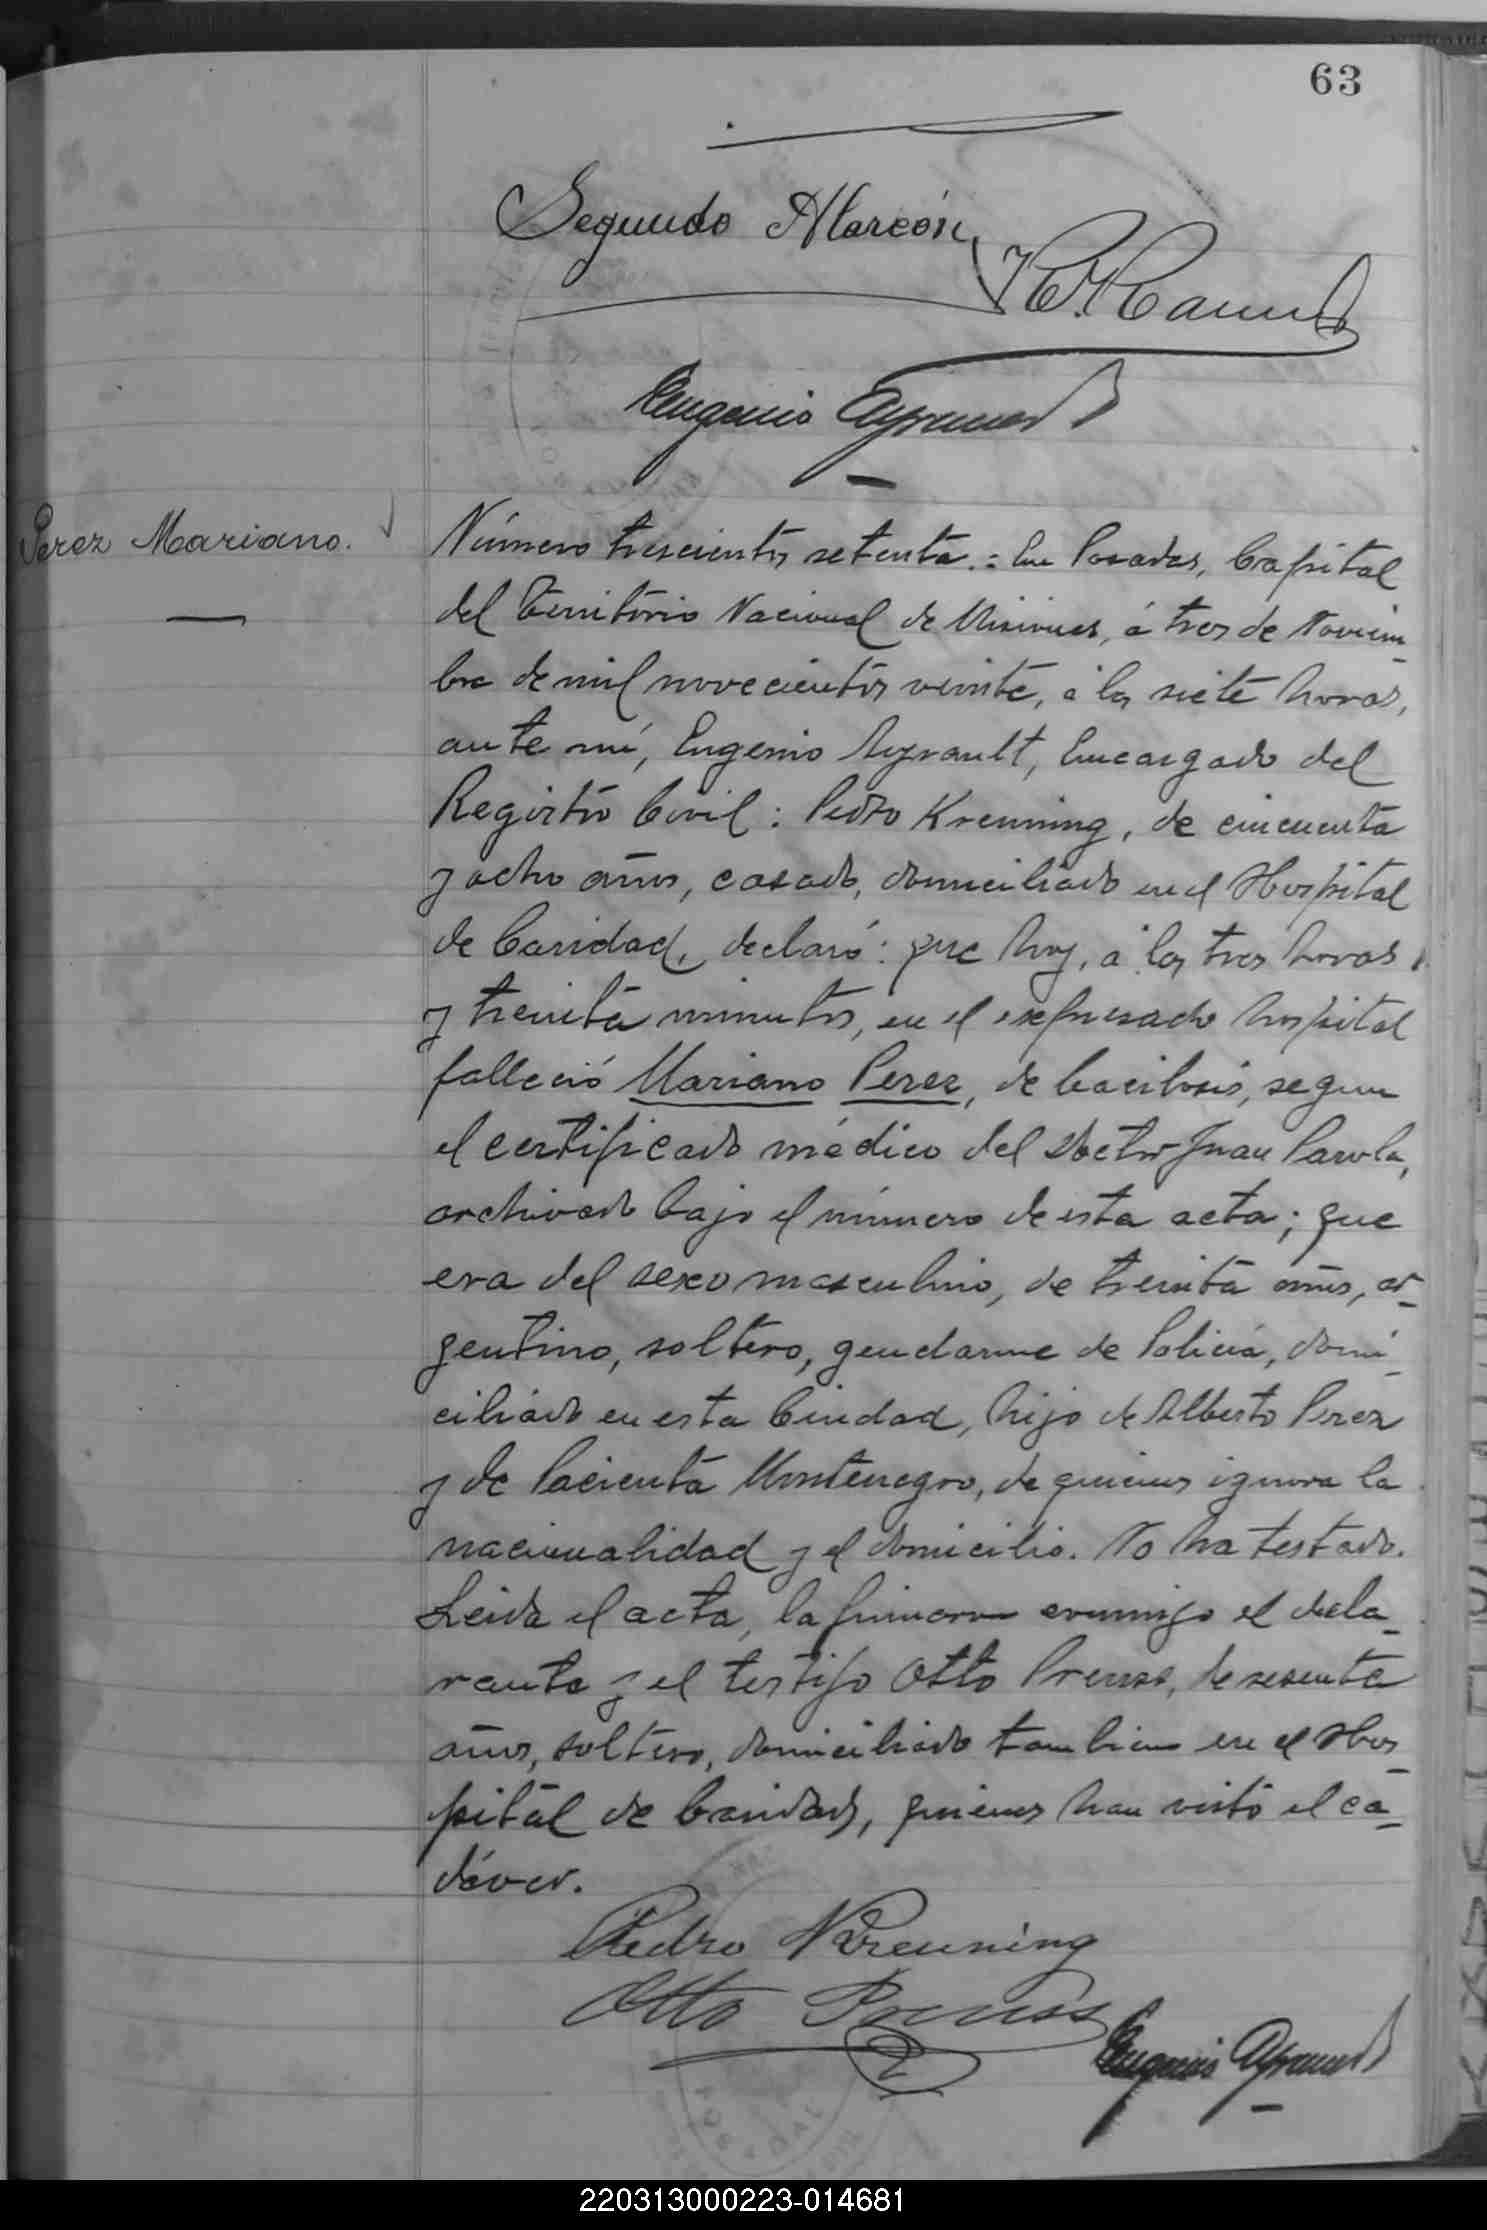 63
Segundo Alarcón
Eugenio Ayrault
Perez Mariano.
Número trescientos setenta.= En Posadas, Capital
del Territorio Nacional de Misiones, á tres de Noviem_
bre de mil novecientos veinte, á las siete horas,
ante mí, Eugenio Ayrault, Encargado del
Registro Civil: Pedro Kreuning, de cincuenta
y ocho años, casado, domiciliado en el Hospital
de Caridad, declaró: que hoy, á las tres horas
y treinta minutos, en el expresado hospital
falleció Mariano Perez, de bacilosis, segun
el certificado médico del Doctor Juan Parola,
archivado bajo el número de esta acta; que
era del sexo masculino, de treinta años, ar_
gentino, soltero, gendarme de Policía, domi_
ciliado en esta Ciudad, hijo de Alberto Perez
y de Pacienta Montenegro, de quienes ignora la
nacionalidad y el domicilio. No ha testado.
Leida el acta, la firmaron conmigo el decla_
rante y el testigo Otto Preuss, de sesenta
años, soltero, domiciliado tambien en el Hos_
pital de Caridad, quienes han visto el ca_
dáver.
Pedro Kreuning
Otto Preuss
Eugenio Ayrault
220313000223-014681